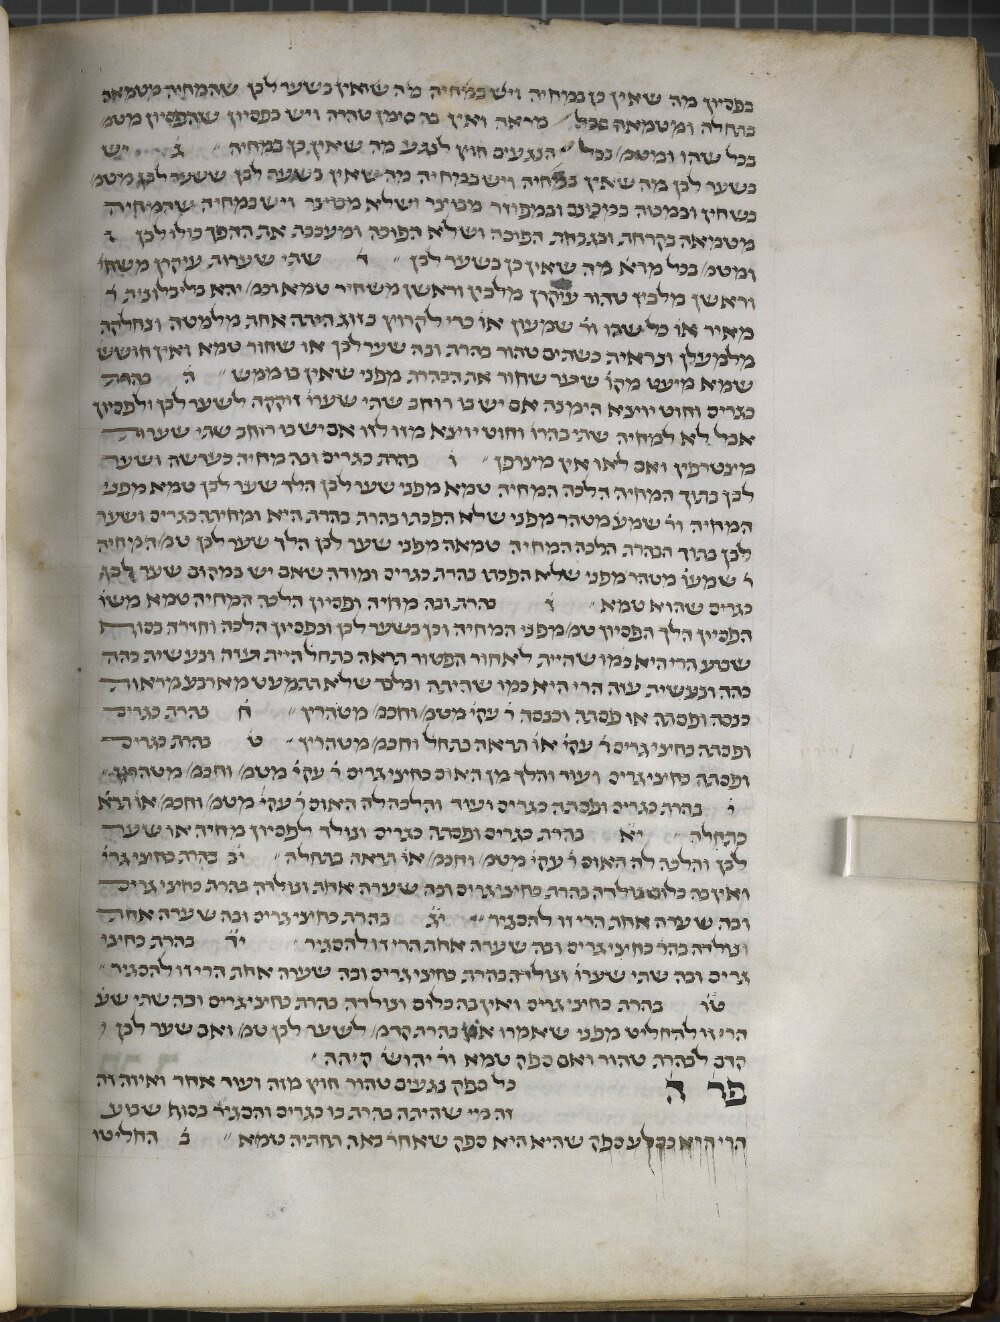 בפסיון מה שאין כן במחיה ויש במחיה מה שאין בשער לבן שהמחיה מטמאה
בתחלה ומטמאה בכל מראה ואין בה סימן טהרה ויש בפסיון שהפסיון מטמ׳
בכל שהו ומטמ׳ בכל הנגעים חוץ לנגע מה שאין כן במחיה ״ ג יש
בשער לבן מה שאין במחיה ויש במחיה מה שאין בשער לבן ששער לבן מטמ׳
בשחין ובמכוה במכונס ובמפוזר מבוצר ושלא מבוצר ויש במחיה שהמחיה
מטמאה בקרחת ובגבחת הפוכה ושלא הפוכה ומעכבת את ההפך כולו לבן
ומטמ׳ בכל מרא׳ מה שאין כן בשער לבן ״ ד שתי שערות עיקרן משחי׳
וראשן מלבין טהור עיקרן מלבין וראשן משחיר טמא וכמ׳ יהא בליבלונית ר׳
מאיר או׳ כל שהו ור׳ שמעון או׳ כדי לקרוץ בזוג היתה אחת מלמטה ונחלקה
מלמעלן ונראית כשתים טהור בהרת ובה שער לבן או שחור טמא ואין חושש
שמא מיעט מקו׳ שיער שחור את הבהרת מפני שאין בו ממש ״ ה בהרת
כגריס וחוט יוצא הימנה אם יש בו רוחב שתי שערו׳ זוקקה לשער לבן ולפסיון
אבל לא למחיה שתי בהרו׳ וחוט יוצא מזו לזו אם יש בו רוחב שתי שערות
מצטרפין ואם לאו אין מצרפן ״ ו בהרת כגריס ובה מחיה כעדשה ושער
לבן בתוך המחיה הלכה המחיה טמא מפני שער לבן הלך שער לבן טמא מפני
המחיה ור׳ שמע׳ מטהר מפני שלא הפכתו בהרת בהרת היא ומחיתה כגריס ושער
לבן בתוך הבהרת הלכה המחיה טמאה מפני שער לבן הלך שער לבן טמ׳ המחיה
ר׳ שמעו׳ מטהר מפני שלא הפכתו בהרת כגריס ומודה שאם יש במקום שער לבן
כגריס שהוא טמא ״ ז בהרת ובה מחיה ופסיון הלכה המחיה טמא משו׳
הפסיון הלך הפסיון טמ׳ מפני המחיה וכן בשער לבן ובפסיון הלכה וחזרה בסוף
שבוע הרי היא כמו שהיית לאחור הפטור תראה בתחל׳ היית עזה ונעשית כהה
כהה ונעשית עזה הרי היא כמו שהיתה ובלבד שלא תתמעט מארבע מראות
כנסה ופסתה או פסתה וכנסה ר׳ עקי׳ מטמ׳ וחכמ׳ מטהרין ״ ח בהרת כגריס
ופסתה כחצי גריס ר׳ עקי׳ או׳ תראה בתחל׳ וחכמ׳ מטהרין ״ ט בהרת כגריס
ופסתה כחצי גריס ועוד והלך מן האום כחצי גריס ר׳ עקי׳ מטמ׳ וחכמ׳ מטהרין ״
י בהרת כגריס ופסתה כגריס ועוד והלכה לה האום ר׳ עקי׳ מטמ׳ וחכמ׳ או׳ תרא׳
בתחלה ״ יא בהרת כגריס ופסתה כגריס ונולד לפסיון מחיה או שער
לבן והלכה לה האום ר׳ עקי׳ מטמ׳ וחכמ׳ או׳ תראה בתחלה ״ יב בהרת כחצי גרי׳
ואין בה כלום נולדה בהרת כחצי גריס ובה שערה אחת ונולדה בהרת כחצי גריס
ובה שערה אחת הרי זו להסגיר ״ יג בהרת כחצי גריס ובה שערה אחת
ונולדה בהר׳ כחצי גריס ובה שערה אחת הרי זו להסגיר ״ יד בהרת כחצי
גריס ובה שתי שערו׳ ונולדה בהרת כחצי גריס ובה שערה אחת הרי זו להסגיר ״
טו בהרת כחצי גריס ואין בה כלום ונולדה בהרת כחצי גריס ובה שתי שע׳
הרי זו להחליט מפני שאמרו אם בהרת קדמ׳ לשער לבן טמ׳ ואם שער לבן
קדם לבהרת טהור ואם ספק טמא ור׳ יהוש׳ קיהה ׳
פר ה כל ספק נגעים טהור חוץ מזה ועוד אחר ואיזה זה
זה מי שהיתה בהרת בו כגריס והסגיר בסוף שבוע
הרי היא כסלע ספק שהיא היא ספק שאחר׳ באת תחתיה טמא ״ ב החליטו